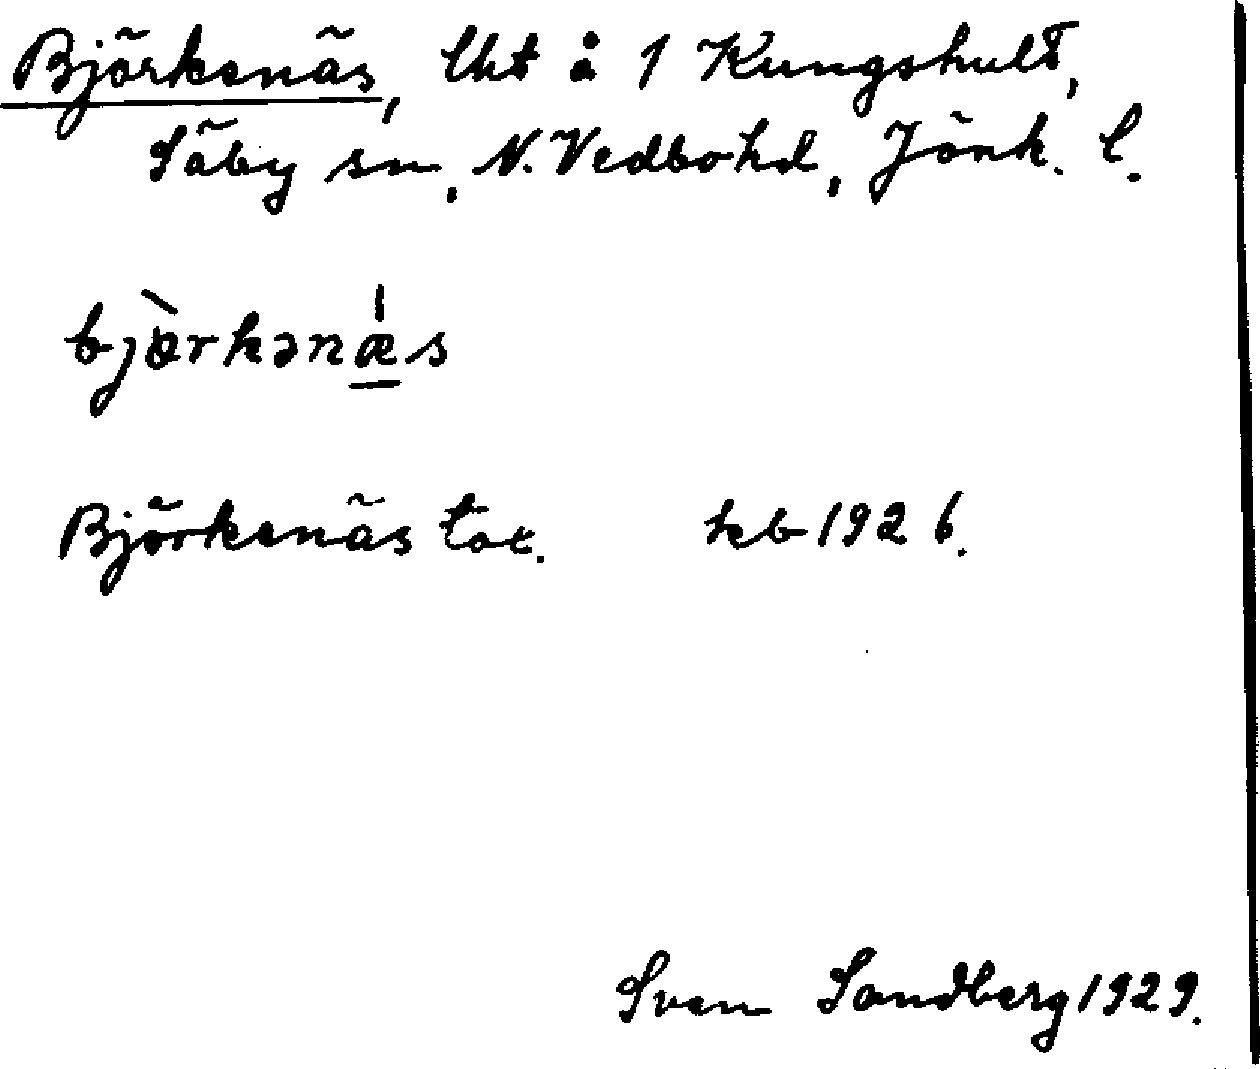 Björkenäs, lht å 1 Kungshult,
Säby sn, N. Vedbohd, Jönk. l.
bjö̀rkənǽs
Björkenäs tor. kb 1926.
Sven Sandberg 1929.